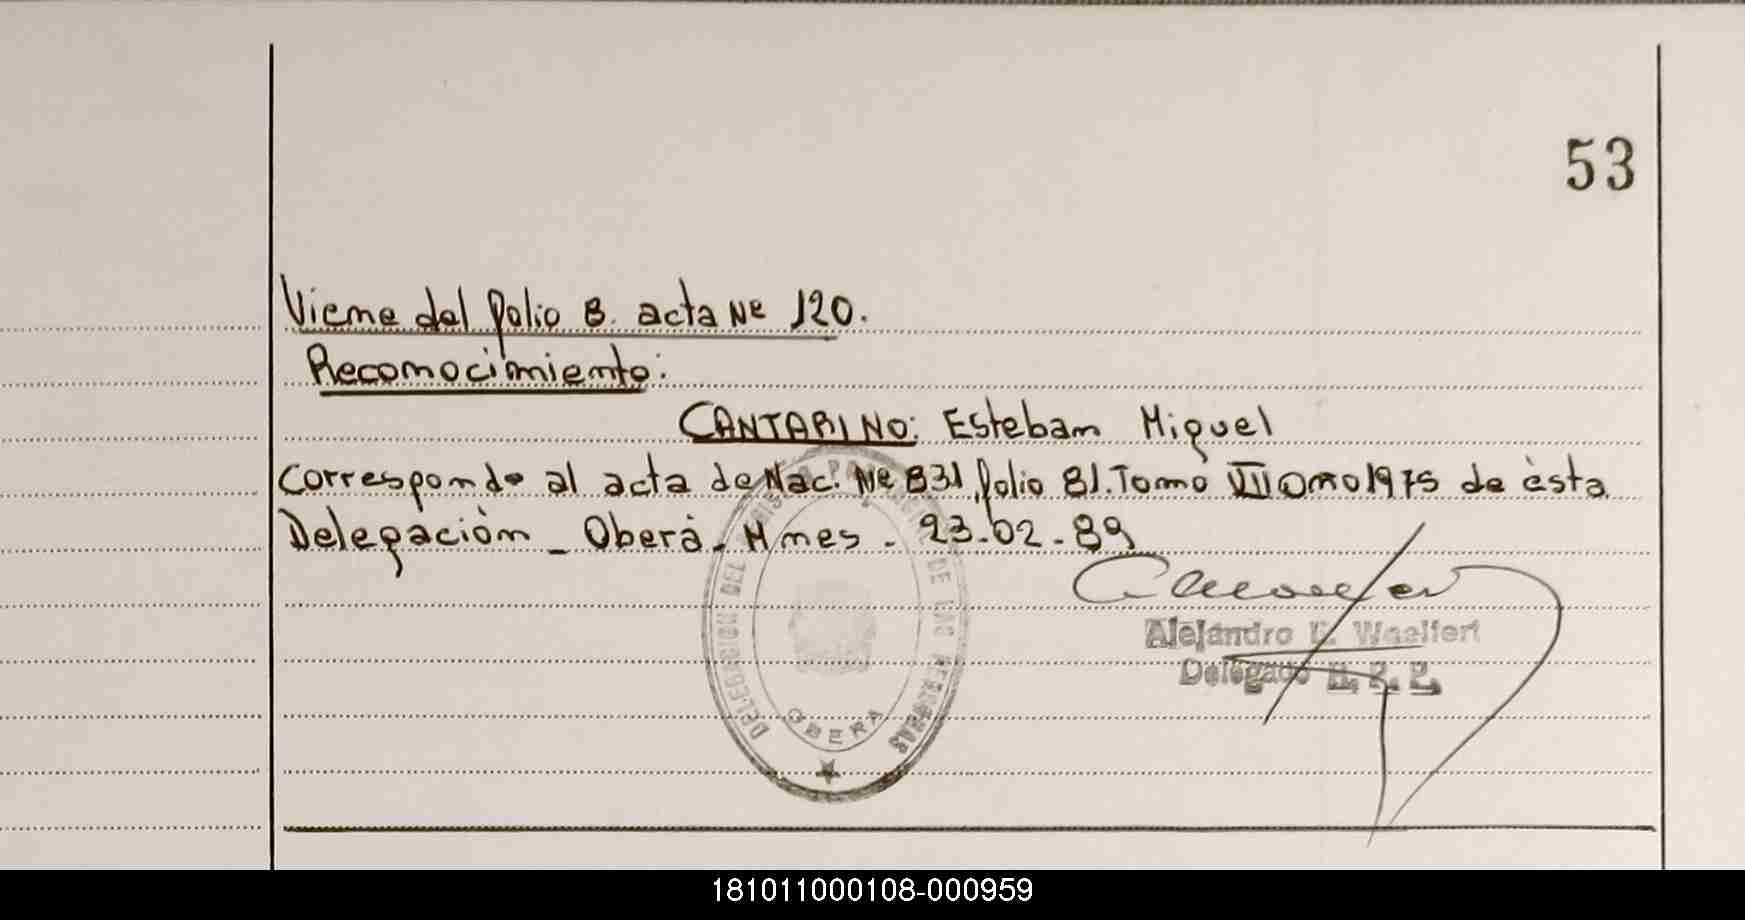 53
Viene del folio 8. acta Nº 120.
Reconocimiento:
CANTARINO: Esteban Miguel
Corresponde al acta de Nac. Nº 831, folio 81. Tomo VII año 1975 de ésta
Delegación - Oberá - Mnes - 23-02-89
Alejandro
Delegado R. P. P.
DELEGACION DEL DE LAS PERSONAS
OBERA
181011000108-000959